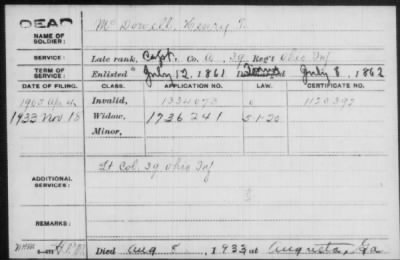 DEAD
NAME OF SOLDIER: McDowell, Henry T.
SERVICE: Late rank, Capt. Co. A, 39 Reg't Ohio Inf
TERM OF SERVICE: Enlisted July 12, 1861 July 8, 1862
DATE OF FILING. CLASS. APPLICATION NO. LAW. CERTIFICATE NO.
1905 Apr Invalid, 1334073 1120397
1933 Nov 18 Widow, 1736241 5-1-20
Minor,
ADDITIONAL SERVICES: Lt Col. 39 Ohio Inf
REMARKS:
Died Aug 5, 1933 at Augusta, Ga